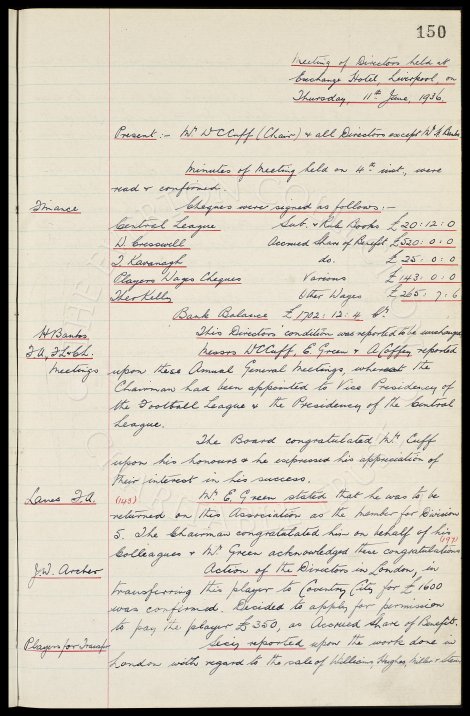 150
Meeting of Directors held at
Exchange Hotel, Liverpool, on
Thursday, 11th June, 1936.
Present :- Mr W C Cuff (Chair) & all Directors except Mr H Banks
Minutes of Meeting held on 4th inst, were
read & confirmed.
Finance
Cheques were signed as follows :-
Central League Sub. & Rule Books £20 : 12 : 0
W Cresswell Accrued Share of Benefit £520 : 0 : 0
J. Kavanagh do. £25 : 0 : 0
Players Wages Cheques Various £143 : 0 : 0
Theo Kelly Other Wages £265 : 7 : 6
Bank Balance £1702 : 12 : 4 Cr
H Banks
This Directors' condition was reported to be unchanged
F.A., F.L. & C.L.
Meetings
Messrs W C Cuff, E. Green & A Coffey reported
upon these Annual General Meetings, whereat the
Chairman had been appointed to Vice Presidency of
the Football League & the Presidency of the Central
League.
The Board congratulated Mr Cuff
upon his honours & he expressed his appreciation of
their interest in his success.
Lancs F.A. (143)
Mr E. Green stated that he was to be
returned on this Association as the member for Division
5. The Chairman congratulated him on behalf of his
Colleagues & Mr Green acknowledged these congratulations
J.W. Archer
Action of the Directors in London, in
transferring this player to Coventry City for £1600
was confirmed. Decided to apply for permission
to pay the player £350, as Accrued Share of Benefit.
Players for Transfer
Secy reported upon the work done in
London with regard to the sale of Williams, Hughes, Miller &